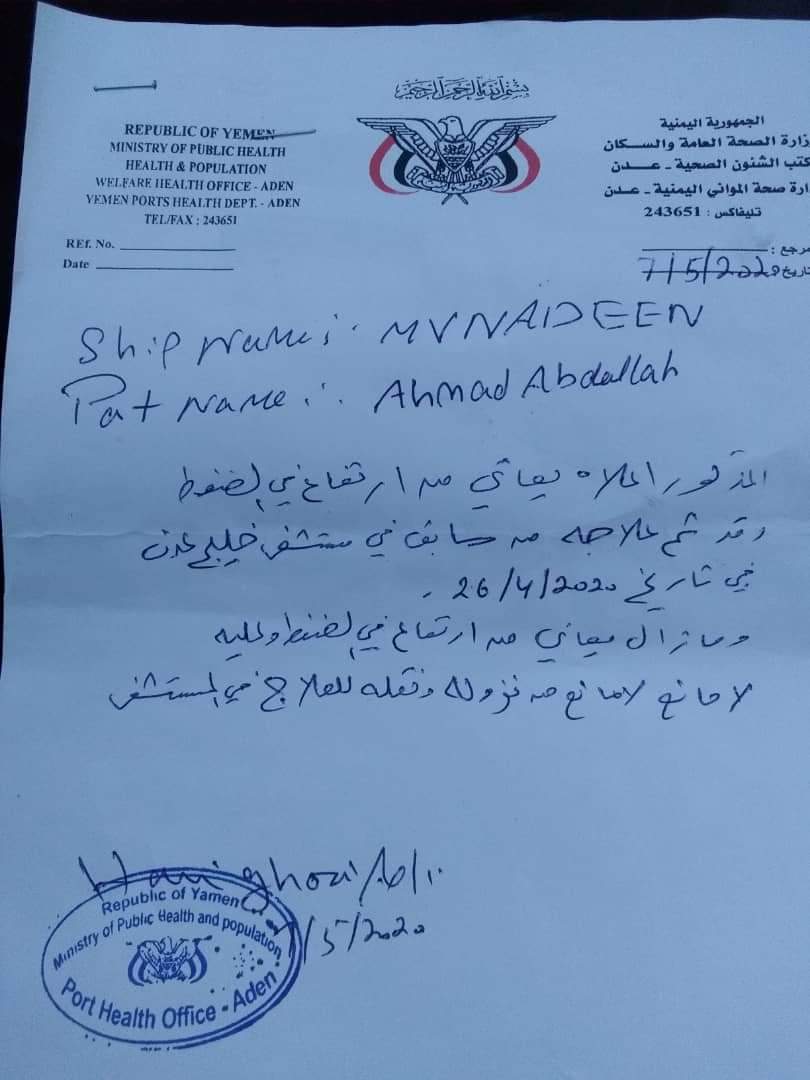 بسم الله الرحمن الرحيم
REPUBLIC OF YEMEN
MINISTRY OF PUBLIC HEALTH
HEALTH & POPULATION
WELFARE HEALTH OFFICE - ADEN
YEMEN PORTS HEALTH DEPT. - ADEN
TEL/FAX : 243651
REf. No.
Date
الجمهورية اليمنية
وزارة الصحة العامة والسكان
كتب الشئون الصحية - عدن
ارة صحة المواني اليمنية - عدن
تليفاكس : 243651
مرجع :
تاريخ 7/5/2020
Ship Name :. MV NADEEN
Pat Name :. Ahmad Abdallah
المذكور اعلاه يعاني من ارتفاع في الضغط
وقد تم علاجه من سابق في مستشفى خليج عدن
في تاريخ 26/4/2020 .
ومازال يعاني من ارتفاع في الضغط وعليه
لامانع لامانع من نزوله ونقله للعلاج في المستشفى
Hani
7/5/2020
Republic of Yamen
Ministry of Public Health and population
Port Health Office - Aden